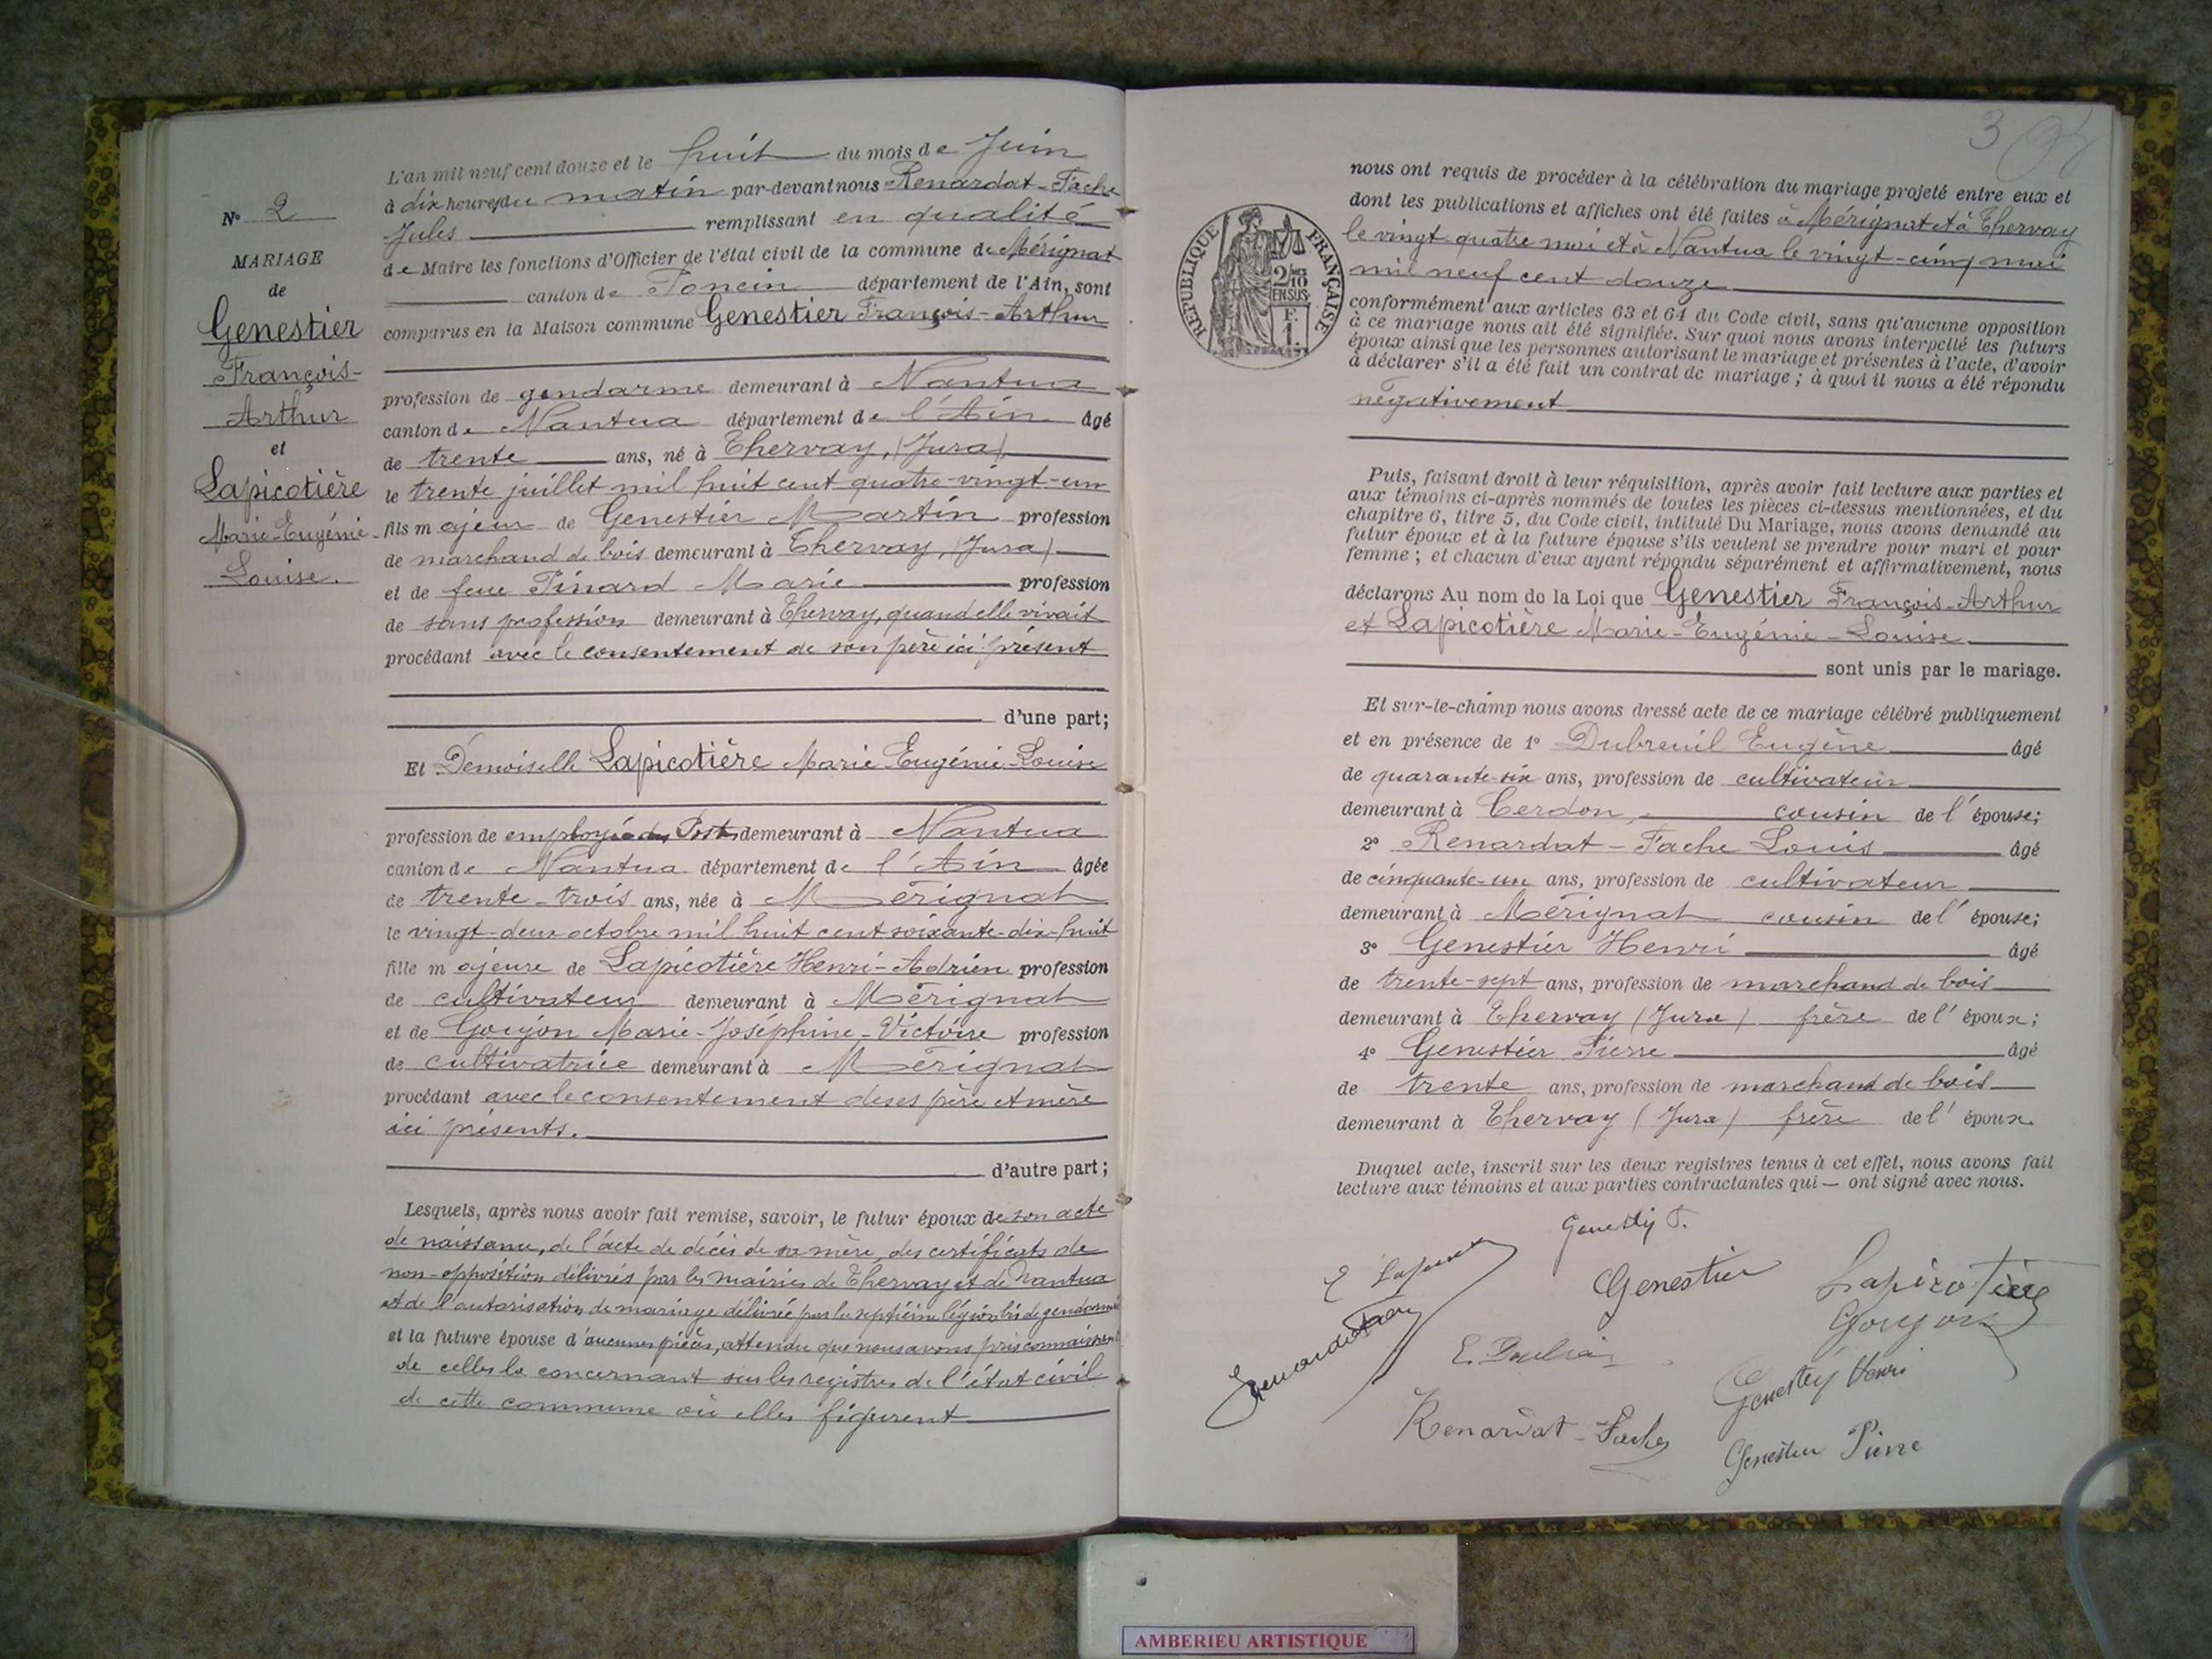 N° 2
MARIAGE
de
Genestier
François-
Arthur
et
Lapicotière
Marie-Eugénie-
Louise.
L'an mil neuf cent douze et le huit du mois de Juin
à dix heures du matin par-devant nous Renardat-Fache
Jules remplissant en qualité
de Maire les fonctions d'Officier de l'état civil de la commune de Mérignat
canton de Poncin département de l'Ain, sont
comparus en la Maison commune Genestier François-Arthur
profession de gendarme demeurant à Nantua
canton de Nantua département de l'Ain âgé
de trente ans, né à Thervay, (Jura)
le trente juillet mil huit cent quatre-vingt-un
fils majeur de Genestier Martin profession
de marchand de bois demeurant à Thervay, (Jura)
et de feue Pinard Marie profession
de sans profession demeurant à Thervay, quand elle vivait
procédant avec le consentement de son père ici présent
d'une part;
Et Demoiselle Lapicotière Marie-Eugénie-Louise
profession de employée des Postes demeurant à Nantua
canton de Nantua département de l'Ain âgée
de trente-trois ans, née à Mérignat
le vingt-deux octobre mil huit cent soixante-dix-huit
fille majeure de Lapicotière Henri-Adrien profession
de cultivateur demeurant à Mérignat
et de Goujon Marie-Joséphine-Victoire profession
de cultivatrice demeurant à Mérignat
procédant avec le consentement de ses père et mère
ici présents.
d'autre part;
Lesquels, après nous avoir fait remise, savoir, le futur époux de son acte
de naissance, de l'acte de décès de sa mère, des certificats de
non-opposition délivrés par les mairies de Thervay et de Nantua
et de l'autorisation de mariage délivrée par la septième légion bis de gendarmerie
et la future épouse d'aucunes pièces, attendu que nous avons pris connaissance
de celles la concernant sur les registres de l'état civil
de cette commune où elles figurent
3
RÉPUBLIQUE FRANÇAISE
2/10
EN SUS
F.
1.
nous ont requis de procéder à la célébration du mariage projeté entre eux et
dont les publications et affiches ont été faites à Mérignat et à Thervay
le vingt quatre mai et à Nantua le vingt-cinq mai
mil neuf cent douze
conformément aux articles 63 et 64 du Code civil, sans qu'aucune opposition
à ce mariage nous ait été signifiée. Sur quoi nous avons interpellé les futurs
époux ainsi que les personnes autorisant le mariage et présentes à l'acte, d'avoir
à déclarer s'il a été fait un contrat de mariage; à quoi il nous a été répondu
négativement
Puis, faisant droit à leur réquisition, après avoir fait lecture aux parties et
aux témoins ci-après nommés de toutes les pièces ci-dessus mentionnées, et du
chapitre 6, titre 5, du Code civil, intitulé Du Mariage, nous avons demandé au
futur époux et à la future épouse s'ils veulent se prendre pour mari et pour
femme; et chacun d'eux ayant répondu séparément et affirmativement, nous
déclarons Au nom de la Loi que Genestier François-Arthur
et Lapicotière Marie-Eugénie-Louise
sont unis par le mariage.
Et sur-le-champ nous avons dressé acte de ce mariage célébré publiquement
et en présence de 1° Dubreuil Eugène âgé
de quarante-six ans, profession de cultivateur
demeurant à Cerdon, cousin de l'épouse;
2° Renardat-Fache Louis âgé
de cinquante-un ans, profession de cultivateur
demeurant à Mérignat cousin de l'épouse;
3° Genestier Henri âgé
de trente-sept ans, profession de marchand de bois
demeurant à Thervay (Jura) frère de l'époux;
4° Genestier Pierre âgé
de trente ans, profession de marchand de bois
demeurant à Thervay (Jura) frère de l'époux.
Duquel acte, inscrit sur les deux registres tenus à cet effet, nous avons fait
lecture aux témoins et aux parties contractantes qui — ont signé avec nous.
Genestier
Lapicotière
Goujon
Renardat-Fache
Henri
Genestier Pierre
AMBERIEU ARTISTIQUE